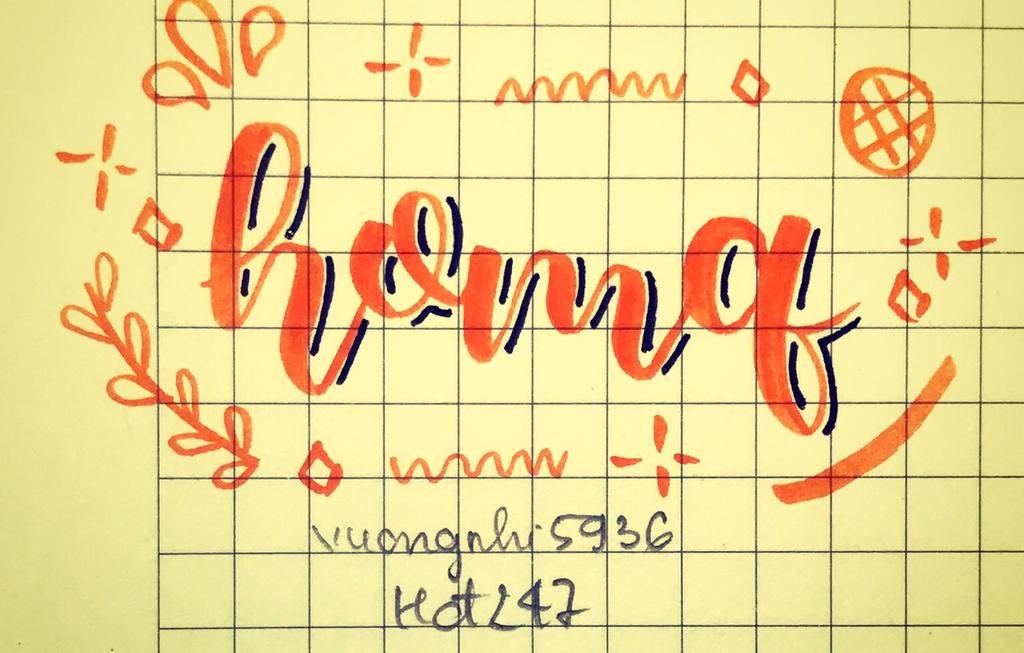 homq
vuongnhi5936
Hot247